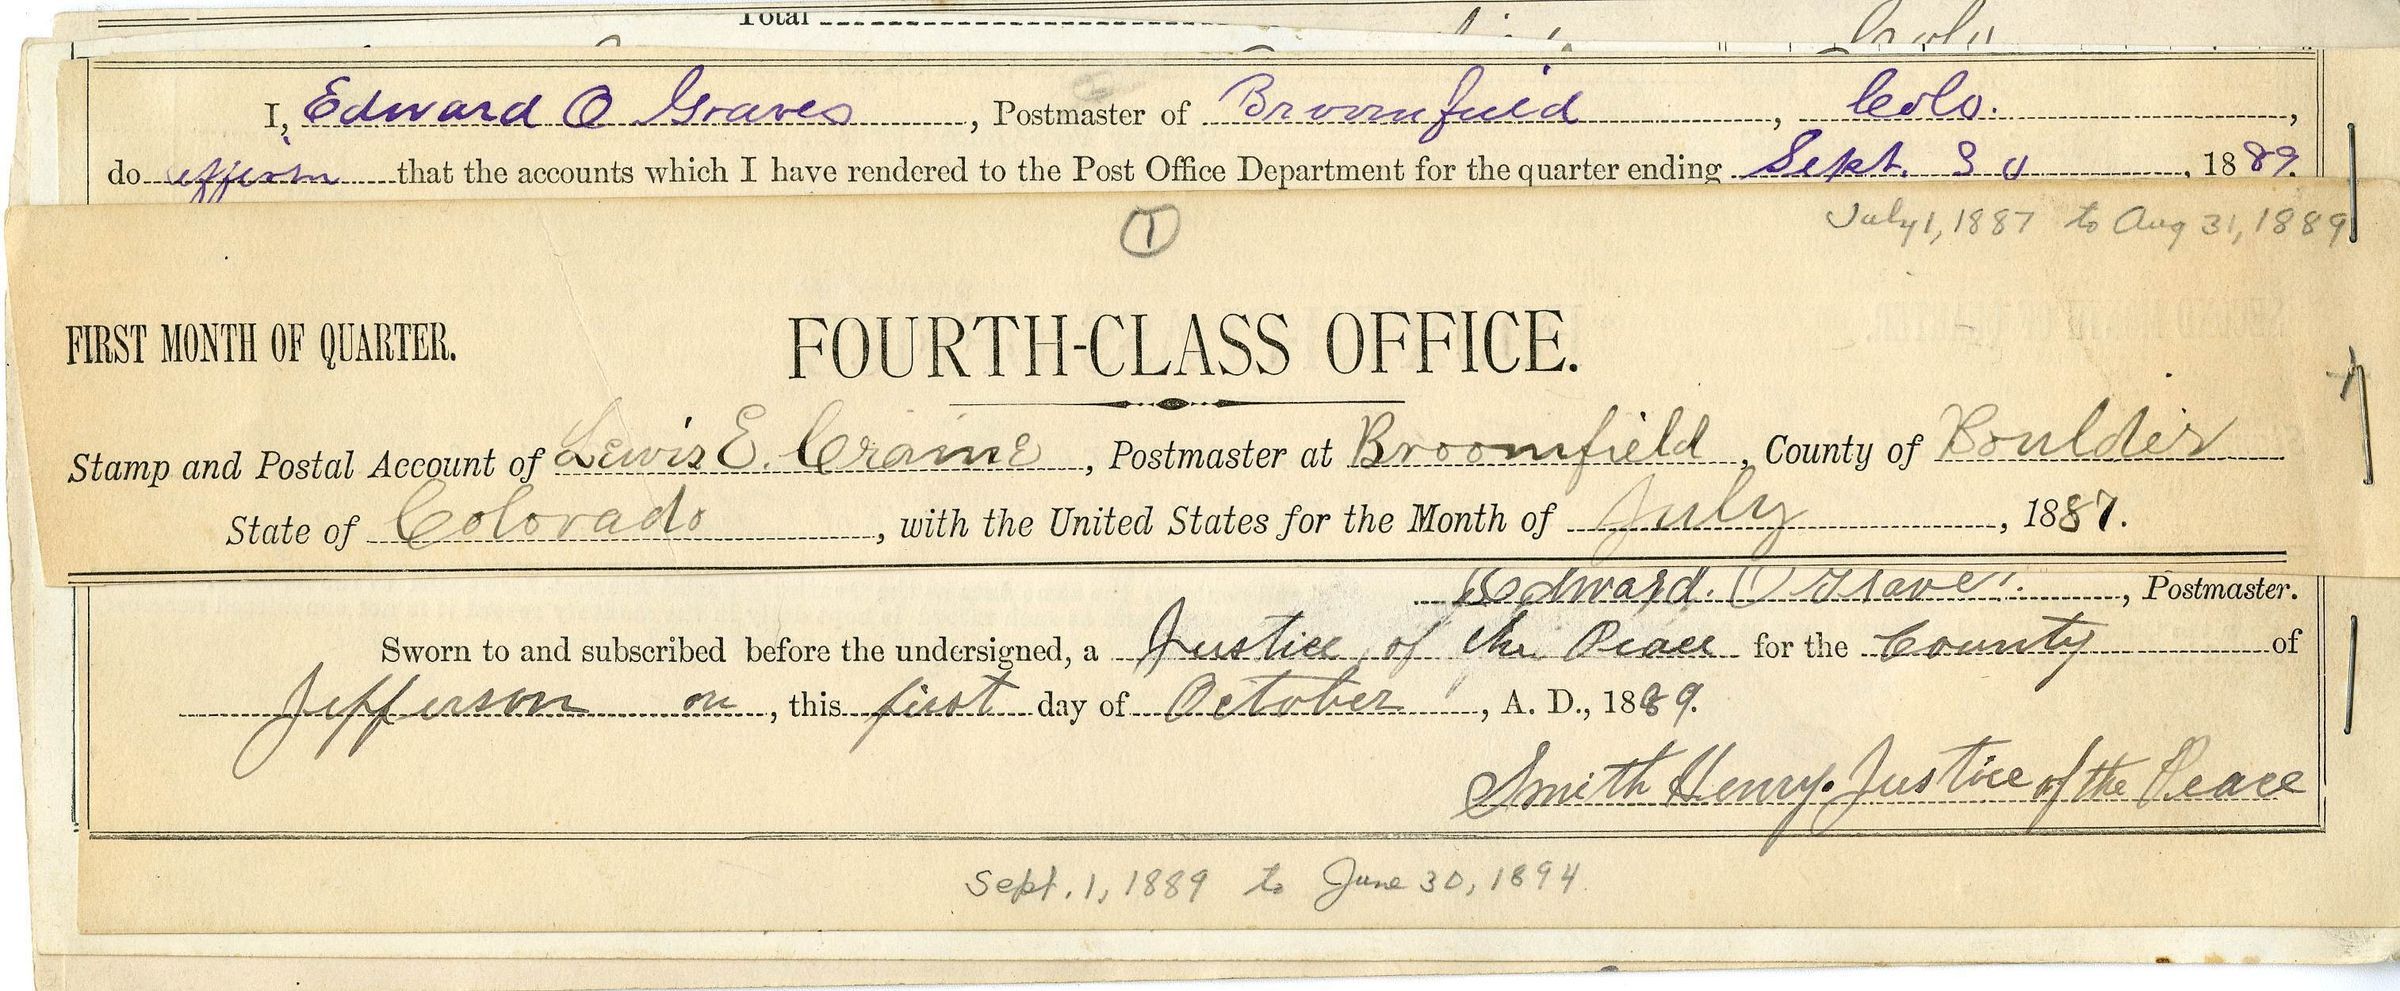 Total
I, Edward O Graves, Postmaster of Broomfield, Colo.,
do affirm that the accounts which I have rendered to the Post Office Department for the quarter ending Sept. 30, 1889.
1
July 1, 1887 to Aug 31, 1889
FIRST MONTH OF QUARTER.
FOURTH-CLASS OFFICE.
Stamp and Postal Account of Lewis E. Craine, Postmaster at Broomfield, County of Boulder
State of Colorado, with the United States for the Month of July, 1887.
Edward. O Graves., Postmaster.
Sworn to and subscribed before the undersigned, a Justice of the Peace for the County of
Jefferson on, this first day of October, A. D., 1889.
Smith Henry. Justice of the Peace
Sept. 1, 1889 to June 30, 1894.